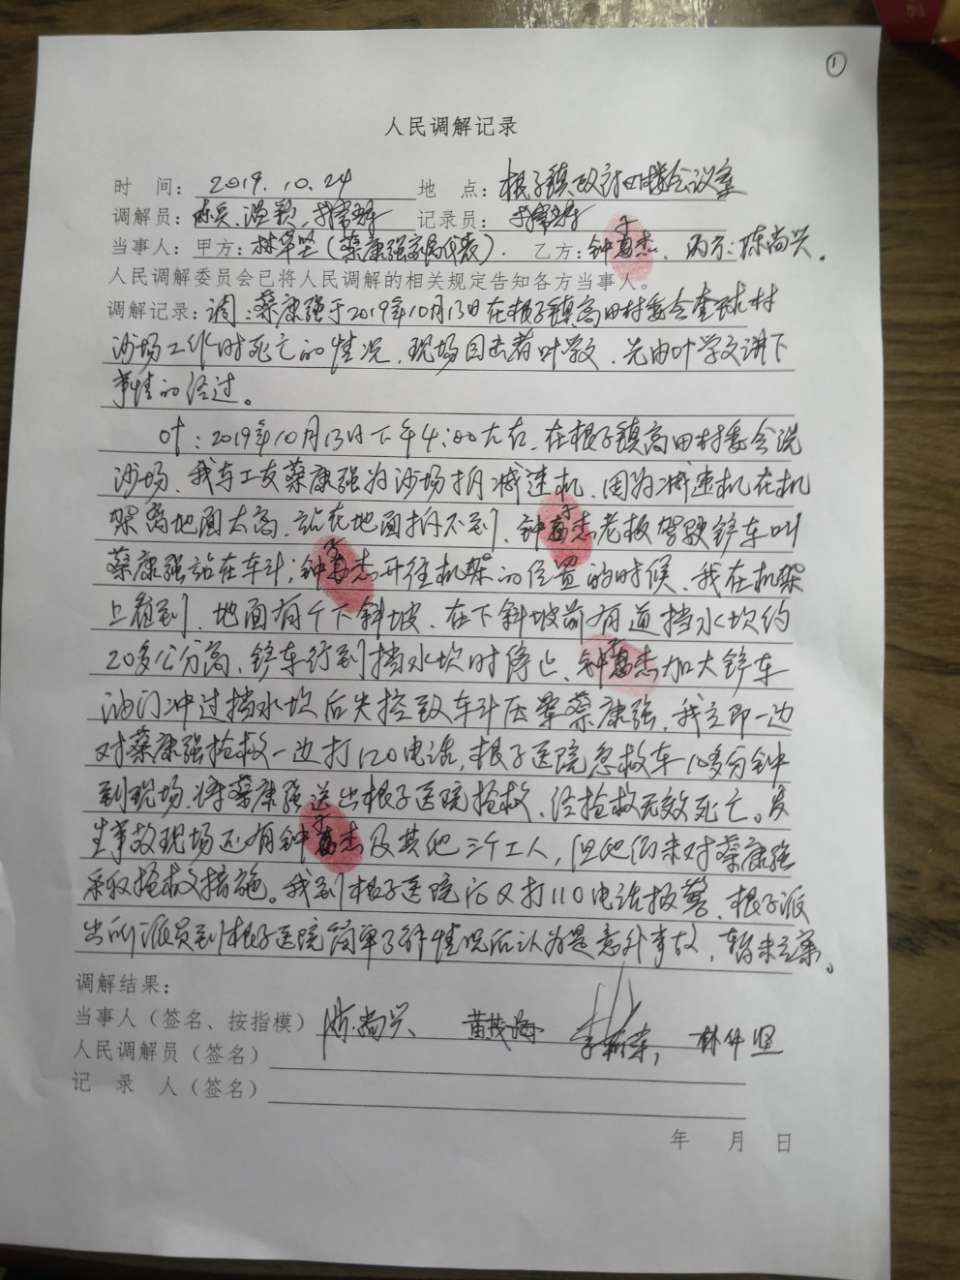 ①
人民调解记录
时 间：2019.10.24 地 点：根子镇政府四楼会议室
调解员：陈兵、温颖、 记录员：
当事人：甲方：林华坚（蔡康强家属代表）. 乙方：钟子杰、丙方：陈尚兴。
人民调解委员会已将人民调解的相关规定告知各方当事人。
调解记录：调：蔡康强于2019年10月13日在根子镇高田村委会 村
沙场工作时死亡的情况，现场目击者叶学文，先由叶学文讲下
事情的经过。
叶：2019年10月13日下午4:00左右，在根子镇高田村委会洗
沙场，我与工友蔡康强为沙场拆减速机，因为减速机在机
架离地面太高，站在地面拆不到，钟子杰老板驾驶铲车叫
蔡康强站在车斗；钟子杰开往机架的位置的时候，我在机架
上看到，地面有个下斜坡，在下斜坡前有道挡水坎约
20多公分高，铲车行到挡水坎时停止，钟子杰加大铲车
油门冲过挡水坎后失控致车斗压晕蔡康强，我立即一边
对蔡康强抢救一边打120电话，根子医院急救车10多分钟
到现场，将蔡康强送出根子医院抢救，经抢救无效死亡。发
生事故现场还有钟子杰及其他三个工人，但他们未对蔡康强
采取抢救措施。我到根子医院后又打110电话报警，根子派
出所派员到根子医院简单了解情况后认为是意外事故，暂未立案。
调解结果：
当事人（签名、按指模）陈尚兴 黄茂海 林华坚
人民调解员（签名）
记 录 人（签名）
年 月 日